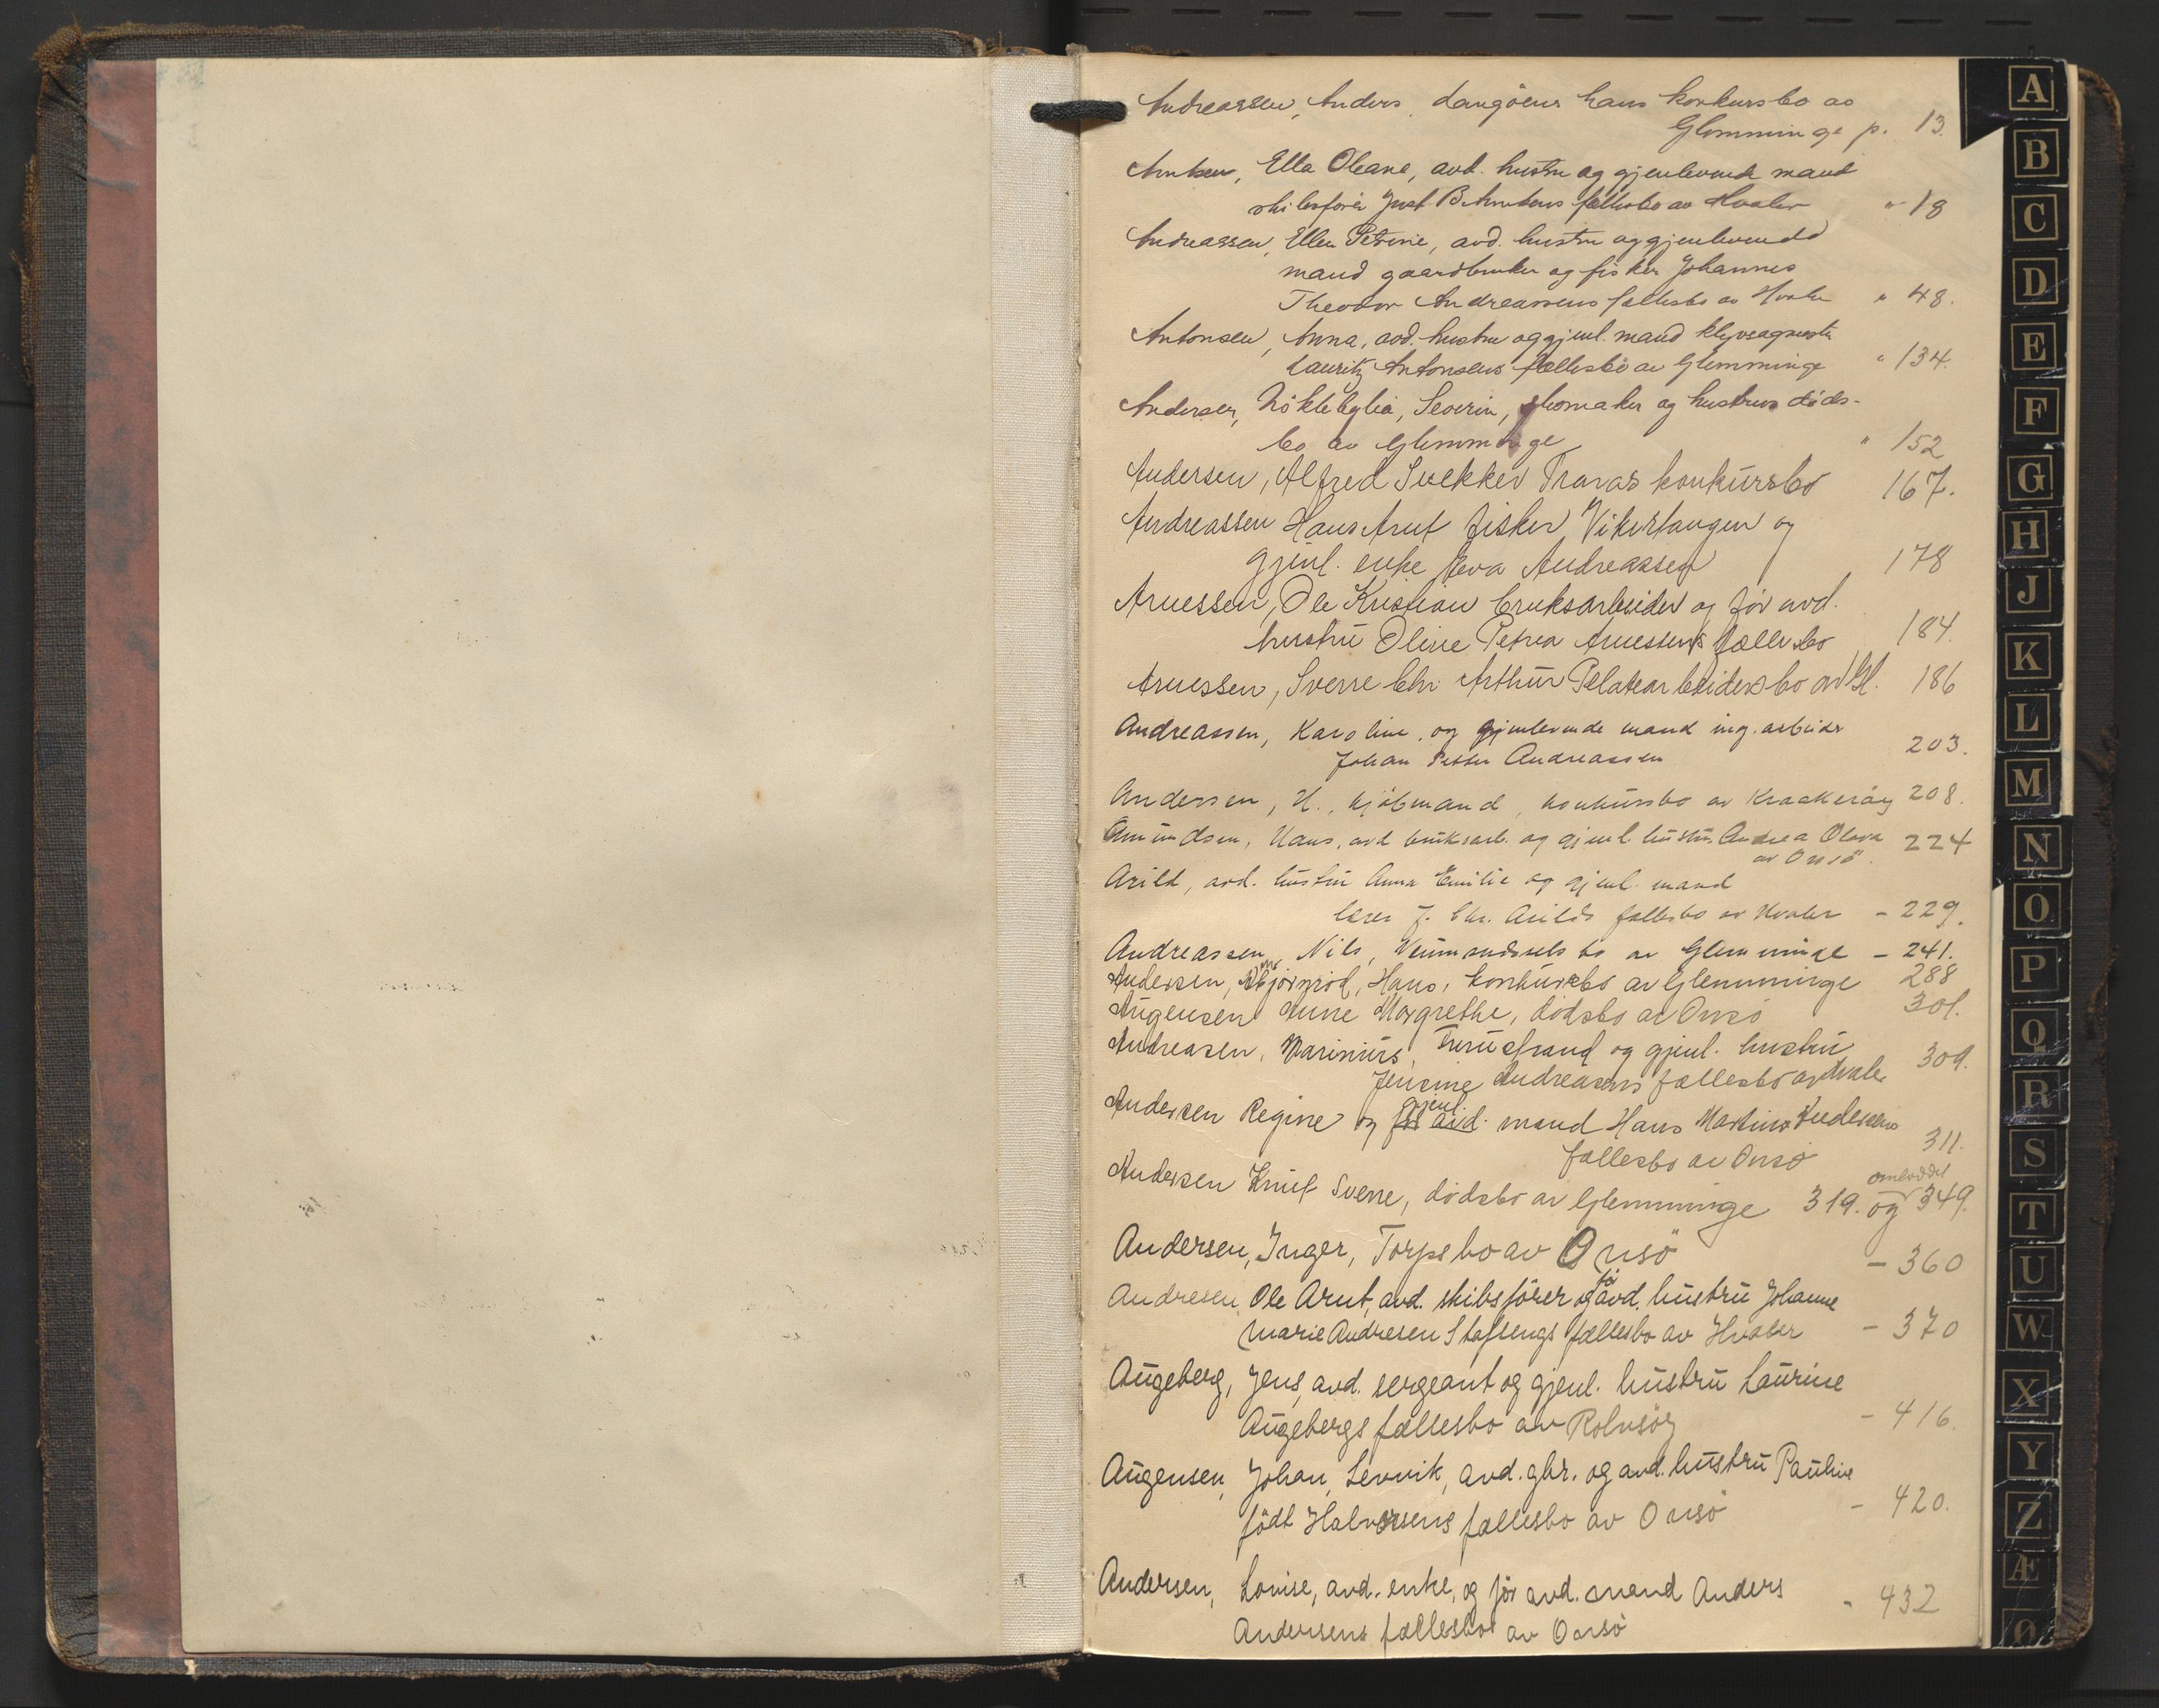 Andreassen, Anders, Langöens hans konkursbo av
Glemminge p. 13.
Arntsen, Ella Oleane, avd. hustru og gjenlevende mand
skibsförer Just B. Arntsens fællesbo av Hvaler " 18
Andreassen, Ellen Petrine, avd. hustru og gjenlevende
mand gaardbruker og fisker Johannes
Theodor Andreassens fællesbo av Hvaler " 48.
Antonsen, Anna, avd. hustru og gjenl. mand
Lauritz Antonsens fællesbo av Glemminge " 134.
Andersen, Severin, skomaker og hustrus döds-
bo av Glemminge " 152
Andersen, Alfred Snekker konkursbo 167.
Andreassen Hans Arnt fisker Vikertangen og
gjenl. enke Eva Andreassen 178
Arnessen, Ole Kristian bruksarbeider og för avd.
hustru Oline Petrea Arnessens fællesbo 184.
Arnessen, Sverre Chr. Arthur bo av Gl. 186
Andreassen, Karoline, og gjenlevende mand arbeider
Johan Petter Andreassen 203.
Andersen, H., kjöbmand, konkursbo av Kraakeröy 208.
Amundsen, Hans, avd. bruksarb. og gjenl. hustru Andrea Olava 224
av Onsö.
Arild, avd. hustru Anna Emilie og gjenl. mand
lærer J. Chr. Arilds fællesbo av Hvaler - 229.
Andreassen, Nils, bo av Glemminge - 241.
Andersen, Hans, konkursbo av Glemminge 288
Augensen Anne Margrethe, dödsbo av Onsö 301.
Andreasen, Marinius, Furustrand og gjenl. hustru
Jensine Andreasens fællesbo av Hvaler 309.
Andersen Regine og för avd. gjenl. mand Hans Martin Andersens
fællesbo av Onsö 311.
Andersen Knut Sverre, dödsbo av Glemminge 319. og 349.
Andersen, Inger, Torpe bo av Onsö - 360
Andresen, Ole Arnt, avd. skibsförer og för avd. hustru Johanne
Marie Andresen Stafsengs fællesbo av Hvaler - 370
Augeberg, Jens, avd. sergeant og gjenl. hustru Laurine
Augebergs fællesbo av Rolvsöy - 416.
Augensen, Johan, Lervik, avd. gbr. og avd. hustru Pauline
född Halvorsens fællesbo av Onsö - 420.
Andersen, Lovise, avd. enke, og för avd. mand Anders
Andersens fællesbo av Onsö - 432
A
B
C
D
E
F
G
H
J
K
L
M
N
O
P
Q
R
S
T
U
W
X
Y
Z
Æ
Ø